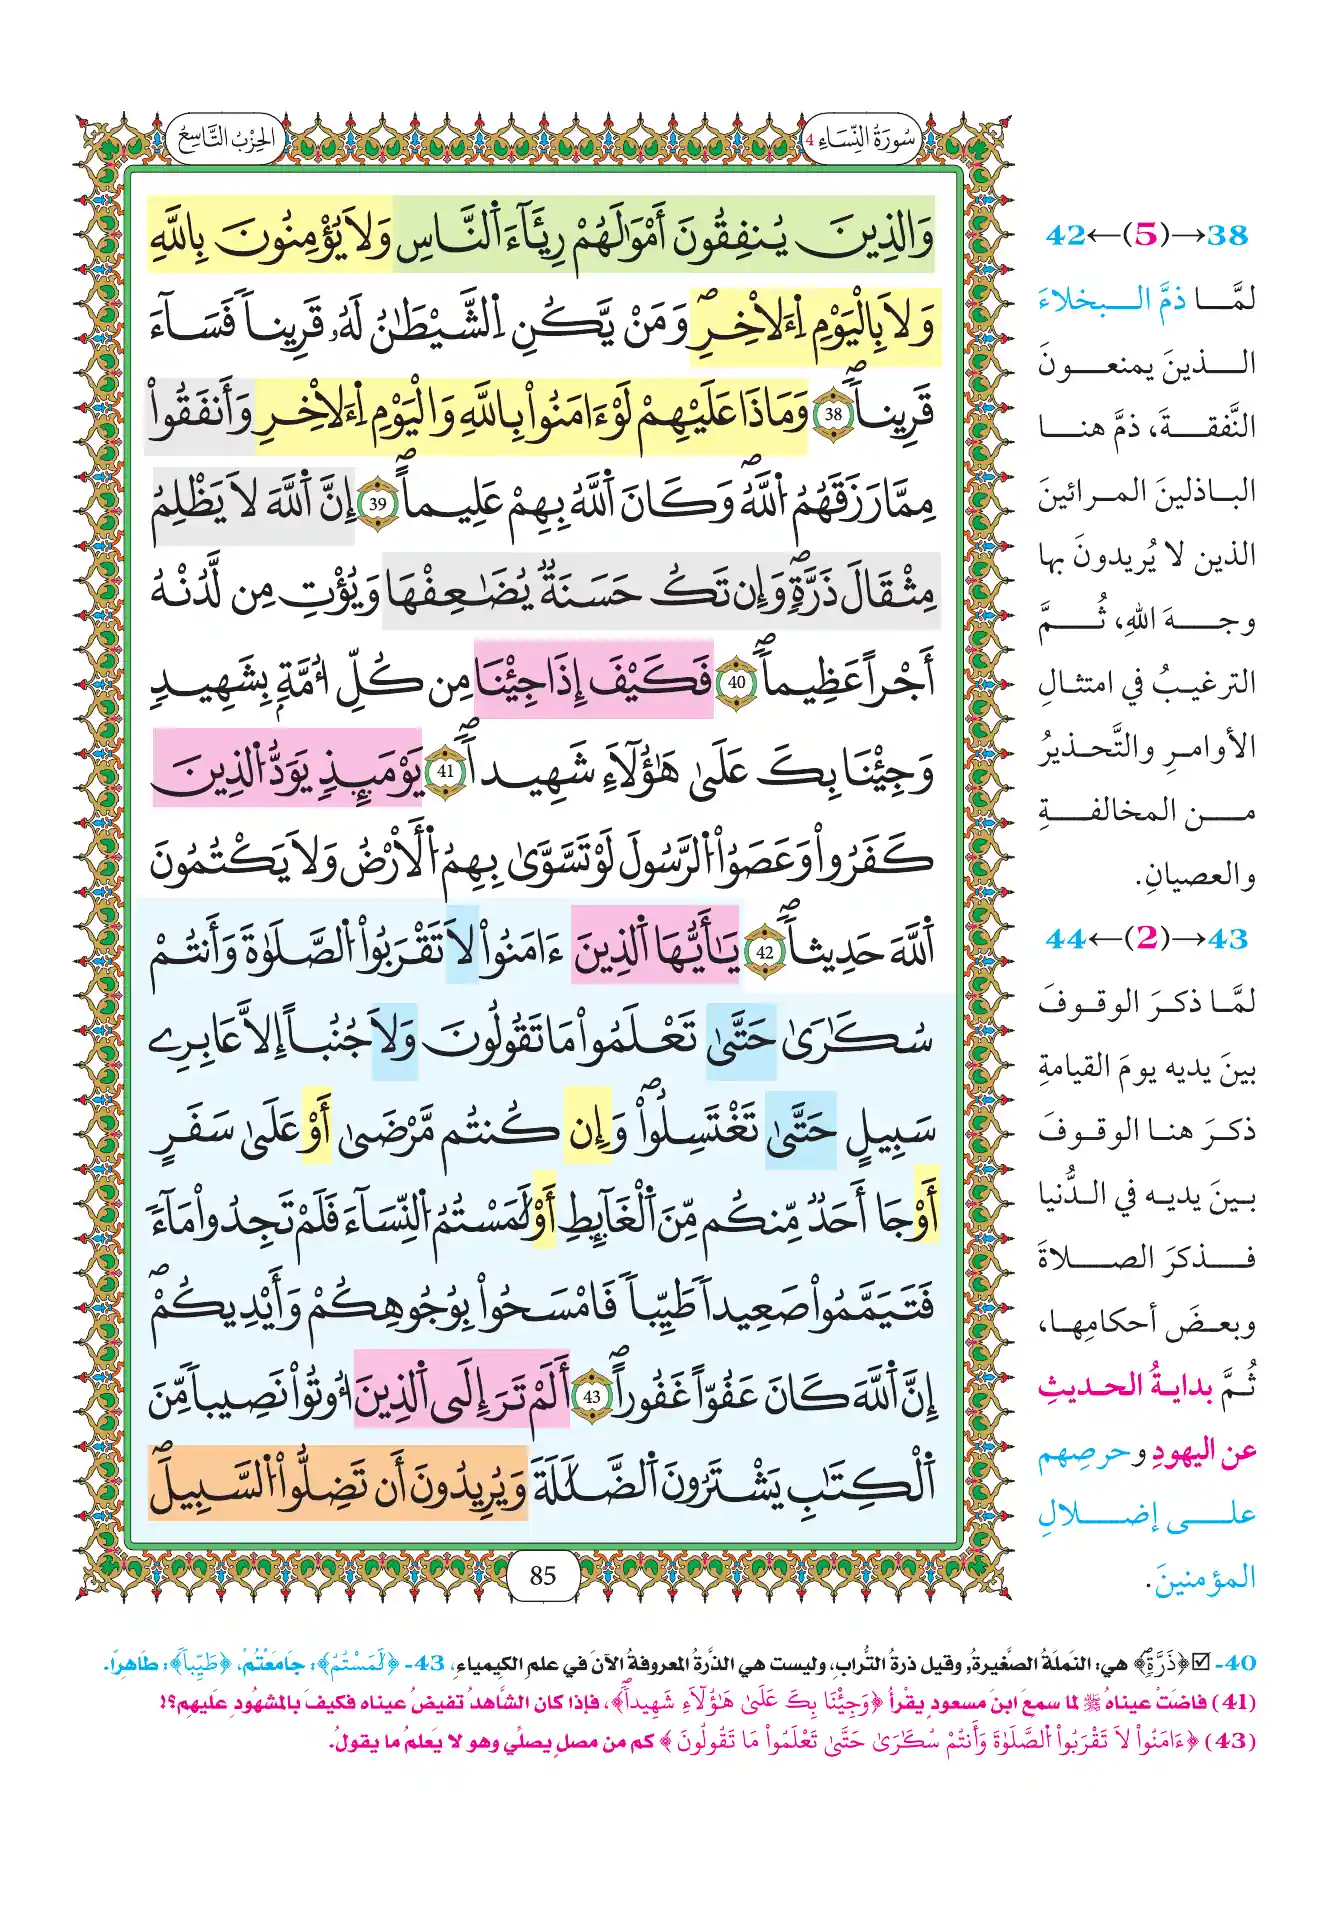 سُورَةُ النِّسَاءِ 4
الحِزْبُ التَّاسِعُ
وَالذِينَ يُنفِقُونَ أَمْوَٰلَهُمْ رِئَآءَ اَ۬لنَّاسِ وَلَا يُؤْمِنُونَ بِاللَّهِ
وَلَا بِالْيَوْمِ اِ۬لَاخِرِۖ وَمَنْ يَّكُنِ اِ۬لشَّيْطَٰنُ لَهُۥ قَرِيناٗ فَسَآءَ
قَرِيناٗۖ 38 وَمَاذَا عَلَيْهِمْ لَوَ ءَامَنُواْ بِاللَّهِ وَالْيَوْمِ اِ۬لَاخِرِ وَأَنفَقُواْ
مِمَّا رَزَقَهُمُ اُ۬للَّهُۖ وَكَانَ اَ۬للَّهُ بِهِمْ عَلِيماًۖ 39 إِنَّ اَ۬للَّهَ لَا يَظْلِمُ
مِثْقَالَ ذَرَّةٖۖ وَإِن تَكُ حَسَنَةٞ يُضَٰعِفْهَا وَيُؤْتِ مِن لَّدُنْهُ
أَجْراً عَظِيماٗۖ 40 فَكَيْفَ إِذَا جِئْنَا مِن كُلِّ أُمَّةِۢ بِشَهِيدٖ
وَجِئْنَا بِكَ عَلَىٰ هَٰٓؤُلَآءِ شَهِيداٗۖ 41 يَوْمَئِذٖ يَوَدُّ اُ۬لذِينَ
كَفَرُواْ وَعَصَوُاْ اُ۬لرَّسُولَ لَوْ تَسَّوَّىٰ بِهِمُ اُ۬لَارْضُ وَلَا يَكْتُمُونَ
اَ۬للَّهَ حَدِيثاٗۖ 42 يَٰٓأَيُّهَا اَ۬لذِينَ ءَامَنُواْ لَا تَقْرَبُواْ اُ۬لصَّلَوٰةَ وَأَنتُمْ
سُكَٰرَىٰ حَتَّىٰ تَعْلَمُواْ مَا تَقُولُونَ وَلَا جُنُباً إِلَّا عَابِرِے
سَبِيلٍ حَتَّىٰ تَغْتَسِلُواْۖ وَإِن كُنتُم مَّرْضَىٰ أَوْ عَلَىٰ سَفَرٍ
أَوْ جَا أَحَدٞ مِّنكُم مِّنَ اَ۬لْغَآئِطِ أَوْ لَٰمَسْتُمُ اُ۬لنِّسَآءَ فَلَمْ تَجِدُواْ مَآءٗ
فَتَيَمَّمُواْ صَعِيداٗ طَيِّباٗ فَامْسَحُواْ بِوُجُوهِكُمْ وَأَيْدِيكُمْۖ
إِنَّ اَ۬للَّهَ كَانَ عَفُوّاً غَفُوراًۖ 43 أَلَمْ تَرَ إِلَى اَ۬لذِينَ أُوتُواْ نَصِيباٗ مِّنَ
اَ۬لْكِتَٰبِ يَشْتَرُونَ اَ۬لضَّلَٰلَةَ وَيُرِيدُونَ أَن تَضِلُّواْ اُ۬لسَّبِيلَۖ
85
38→(5)←42
لمَّا ذمَّ البخلاءَ
الذينَ يمنعونَ
النَّفقةَ، ذمَّ هنا
الباذلينَ المرائينَ
الذين لا يُريدونَ بها
وجهَ اللهِ، ثُمَّ
الترغيبُ في امتثالِ
الأوامرِ والتَّحذيرُ
من المخالفةِ
والعصيانِ.
43→(2)←44
لمَّا ذكرَ الوقوفَ
بينَ يديه يومَ القيامةِ
ذكرَ هنا الوقوفَ
بينَ يديه في الدُّنيا
فذكرَ الصلاةَ
وبعضَ أحكامِها،
ثُمَّ بدايةُ الحديثِ
عن اليهودِ وحرصِهم
على إضلالِ
المؤمنينَ.
40- ☑ ﴿ذَرَّةٖۖ﴾ هي: النَملَةُ الصَّغيرةُ، وقيل ذرةُ التُّرابِ، وليست هي الذَّرةُ المعروفةُ الآنَ في علمِ الكيمياءِ، 43- ﴿لَٰمَسْتُمُ﴾: جَامَعْتُمْ، ﴿طَيِّباٗ﴾: طَاهِرًا.
(41) فاضَتْ عيناهُ ﷺ لما سمعَ ابنَ مسعودٍ يقْرأُ ﴿وَجِئْنَا بِكَ عَلَىٰ هَٰٓؤُلَآءِ شَهِيداٗۖ﴾، فإذا كان الشَّاهدُ تفيضُ عيناه فكيفَ بالمشهُودِ عليهم؟!
(43) ﴿ءَامَنُواْ لَا تَقْرَبُواْ اُ۬لصَّلَوٰةَ وَأَنتُمْ سُكَٰرَىٰ حَتَّىٰ تَعْلَمُواْ مَا تَقُولُونَ﴾ كم من مصلٍ يصلِّي وهو لا يَعلمُ ما يقولُ.